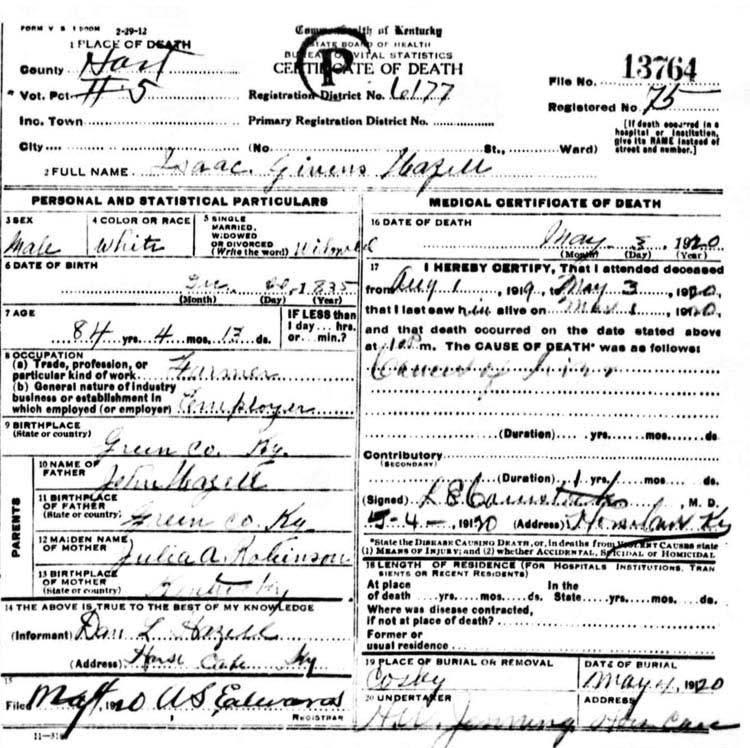 FORM V. S. 2-29-12
Commonwealth of Kentucky
STATE BOARD OF HEALTH
BUREAU OF VITAL STATISTICS
CERTIFICATE OF DEATH
P
1 PLACE OF DEATH
County Hart
Vot. Pct #5
Inc. Town
City
Registration District No. 6177
Primary Registration District No.
(No. St., Ward)
File No. 13764
Registered No 75
[If death occurred in a
hospital or institution,
give its NAME instead of
street and number.]
2 FULL NAME Isaac Givens Hazell
PERSONAL AND STATISTICAL PARTICULARS
3 SEX
Male
4 COLOR OR RACE
White
5 SINGLE
MARRIED,
WIDOWED
OR DIVORCED
(Write the word)
6 DATE OF BIRTH
1835
(Month) (Day) (Year)
7 AGE
84 yrs. 4 mos. 13 ds.
IF LESS than
1 day... hrs.
or... min.?
8 OCCUPATION
(a) Trade, profession, or
particular kind of work Farmer
(b) General nature of industry
business or establishment in
which employed (or employer) Employer
9 BIRTHPLACE
(State or country)
Green Co. Ky.
PARENTS
10 NAME OF
FATHER
John Hazell
11 BIRTHPLACE
OF FATHER
(State or country)
Green Co. Ky
12 MAIDEN NAME
OF MOTHER
Julia A. Robinson
13 BIRTHPLACE
OF MOTHER
(State or country)
Kentucky
14 THE ABOVE IS TRUE TO THE BEST OF MY KNOWLEDGE
(Informant) L Hazell
(Address) Horse Cave Ky
15
Filed May 1920 REGISTRAR
11-31
MEDICAL CERTIFICATE OF DEATH
16 DATE OF DEATH
May 3, 1920
(Month) (Day) (Year)
17 I HEREBY CERTIFY, That I attended deceased
from Aug 1, 1919, to May 3, 1920,
that I last saw him alive on May 1, 1920,
and that death occurred on the date stated above
at m. The CAUSE OF DEATH* was as follows:
Cancer of
(Duration) yrs. mos. ds.
Contributory
(SECONDARY)
(Duration) yrs. mos. ds
(Signed) M. D.
5-4-, 1920 (Address) Ky
*State the DISEASE CAUSING DEATH, or, in deaths from VIOLENT CAUSES state
(1) MEANS OF INJURY; and (2) whether ACCIDENTAL, SUICIDAL or HOMICIDAL
18 LENGTH OF RESIDENCE (FOR HOSPITALS INSTITUTIONS, TRAN
SIENTS OR RECENT RESIDENTS)
At place
of death yrs. mos. ds.
In the
State yrs. mos. ds.
Where was disease contracted,
if not at place of death?
Former or
usual residence
19 PLACE OF BURIAL OR REMOVAL
Cosby
DATE OF BURIAL
May 4, 1920
20 UNDERTAKER
Jenning
ADDRESS
Horse Cave